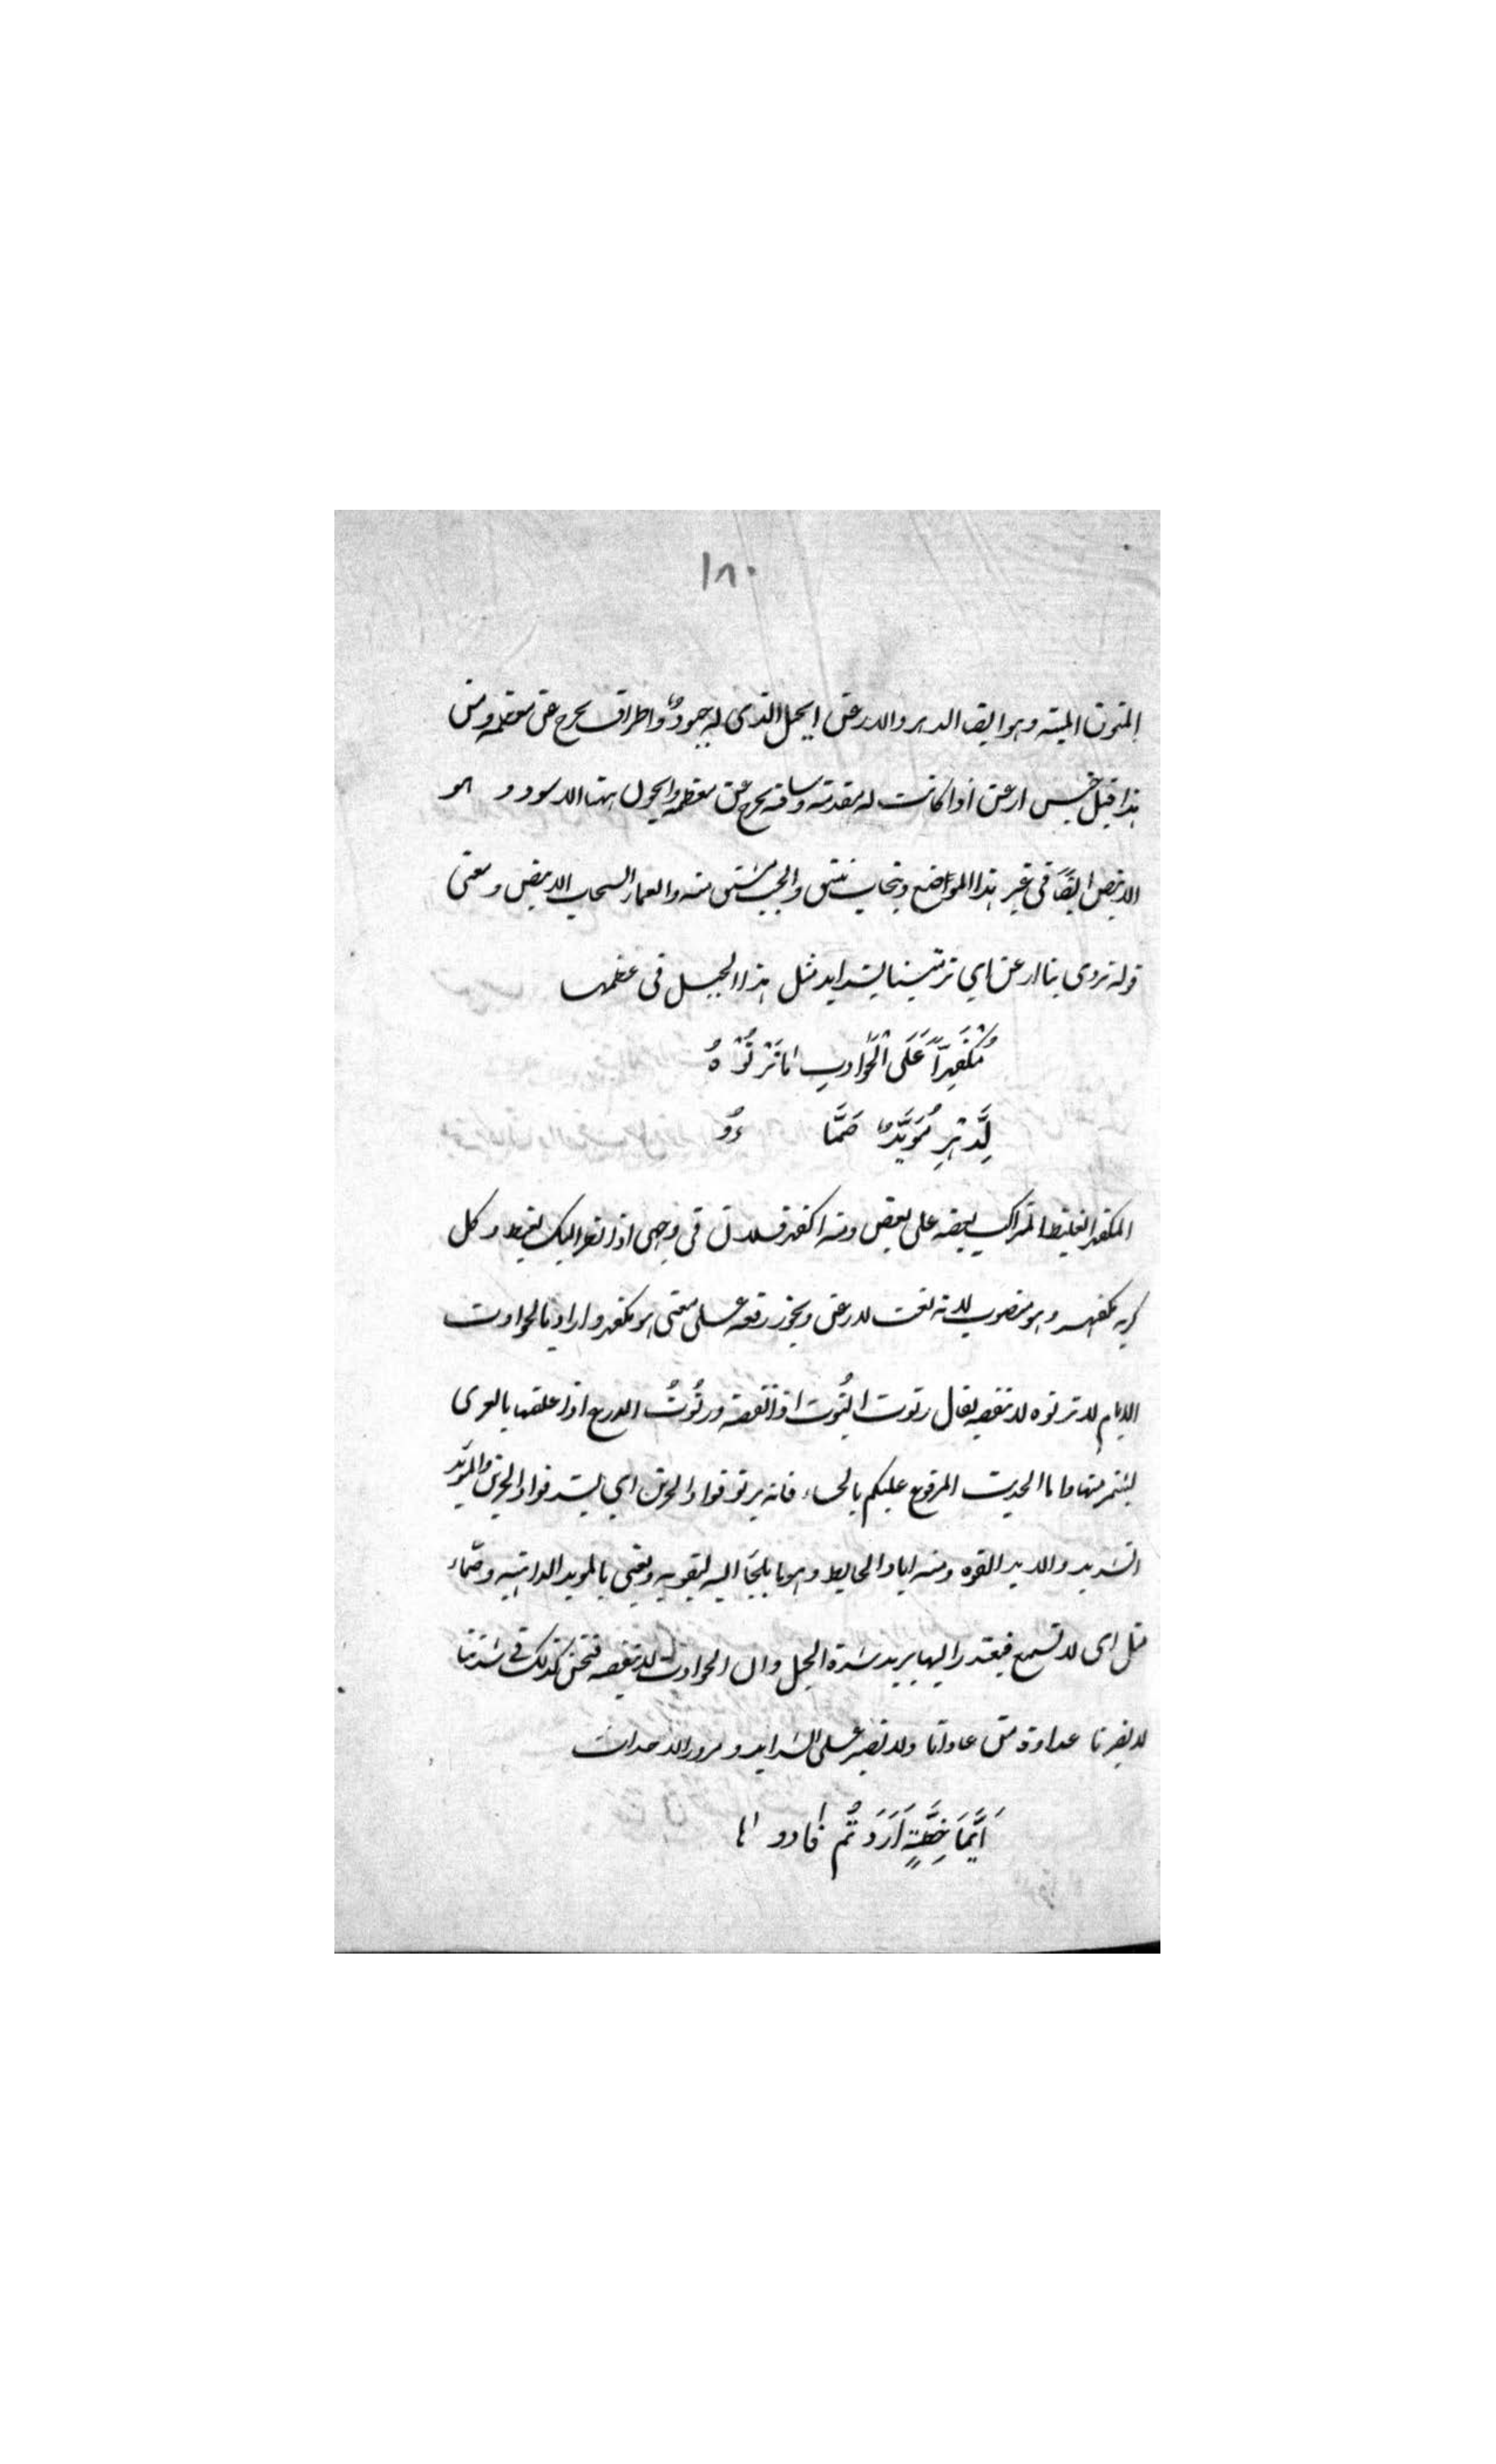 ١٨٠
المنون المنية وهو ايضا الدهر والارعن الجبل الذي له حيود واطراف يخرج عن معظمه ومن
هذا قيل خميس ارعن اذا كانت له مقدمة وساقة يخرج عن معظمه والجون ههنا الاسود و هو
الابيض ايضًا في غير هذا المواضع وينجاب ينشق والجيب مشتق منه والعماء السحاب الابيض ومعنى
قوله تردى بنا ارعن اي ترمينا بشدايد مثل هذا الجبل في عظمها
مُكْفَهِرّاً عَلَى الْحَوادِثِ لا تَرْتُوْهُ
لِلدَّهْرِ مُؤَيِّدٌ صَمَّا ءُ
المكفهر الغليظ المتراكب بعضه على بعض ومنه اكفهر فلان في وجهي اذا نظر اليك بغيظ وكل
كريه مكفهر وهو منصوب لانه نعت لارعن ويجوز رفعه على معنى هو مكفهر واراد بالحوادث
الايام لا ترتوه لا تنقصه يقال رتوت الثوب اذا نقصته ورتوت الدرع اذا علقها بالعرى
ليشمر منها واما الحديث المرفوع عليكم بالحساء فانه يرتو فواد الحزين اي يشد فواد الحزين والمؤيد
الشديد والايد القوة ومنه اياد الحايط وهو ما يلجأ اليه ليقويه ويعني بالمويد الداهية وصماء
مثل اى لا تسمع فيعتذر اليها يريد شدة الجبل وان الحوادث لا تنقصه فنحن كذلك في شدتنا
لا يضرنا عداوة من عادانا ولا نصبر على الشدايد ومرور الاحداث
اَيَّمَا خِطَّةٍ اَرَدَتُم فادو ها